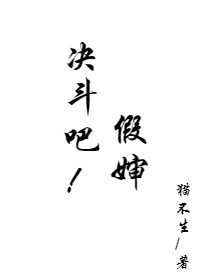 决斗吧！
假婶
猫不生/著